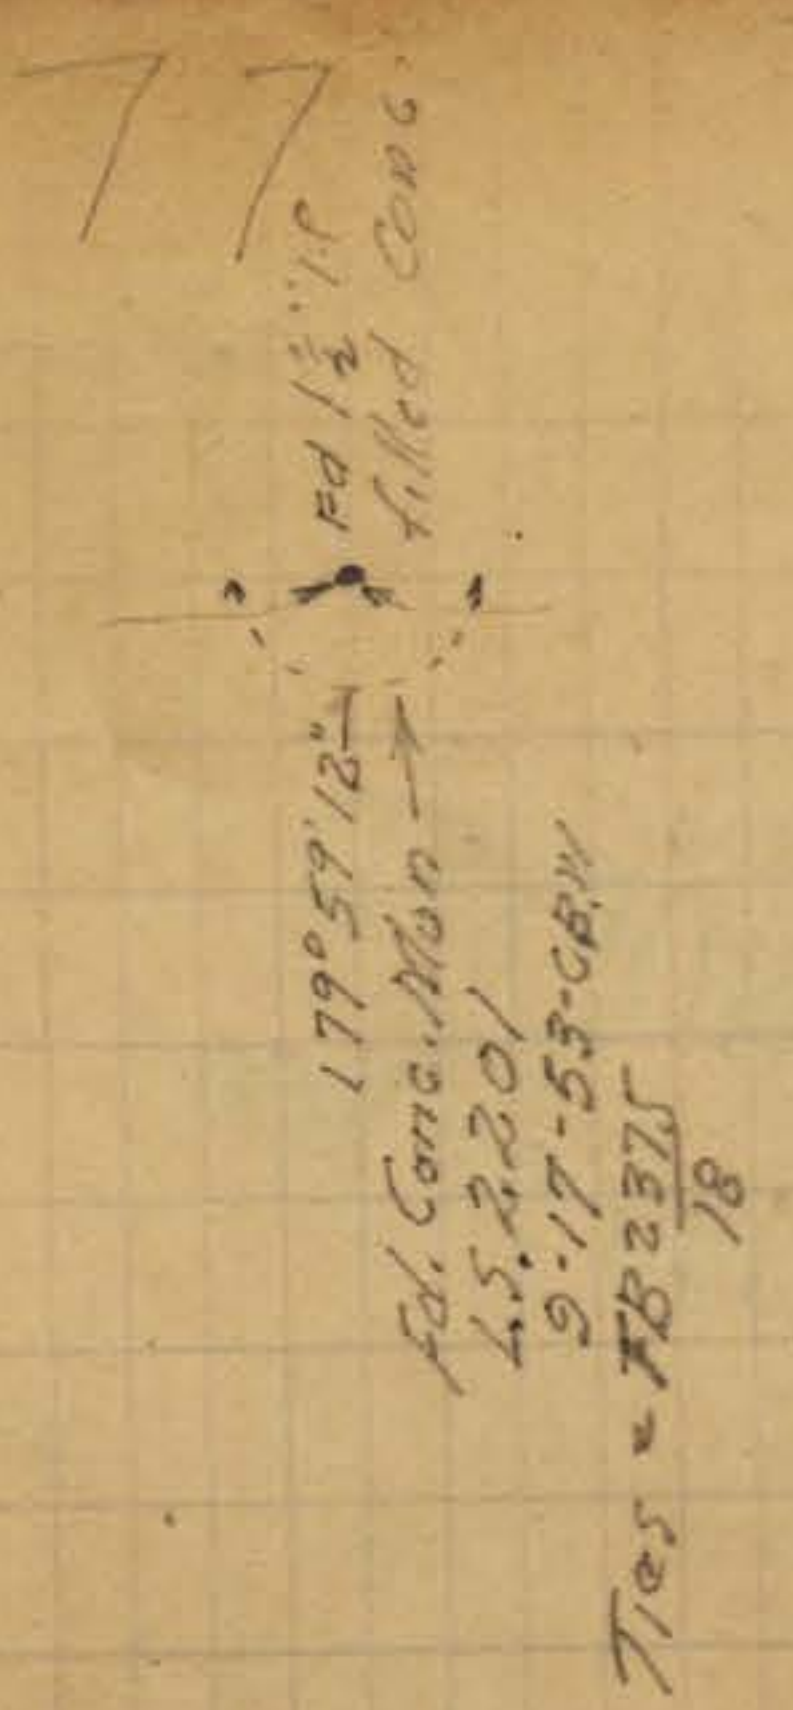 77
Fd 1½" I.P
filled Conc.
179° 59' 12"
Fd. Conc. Mon
L.S. 2201
9-17-53-C.B.W
Ties - FB 2375
18